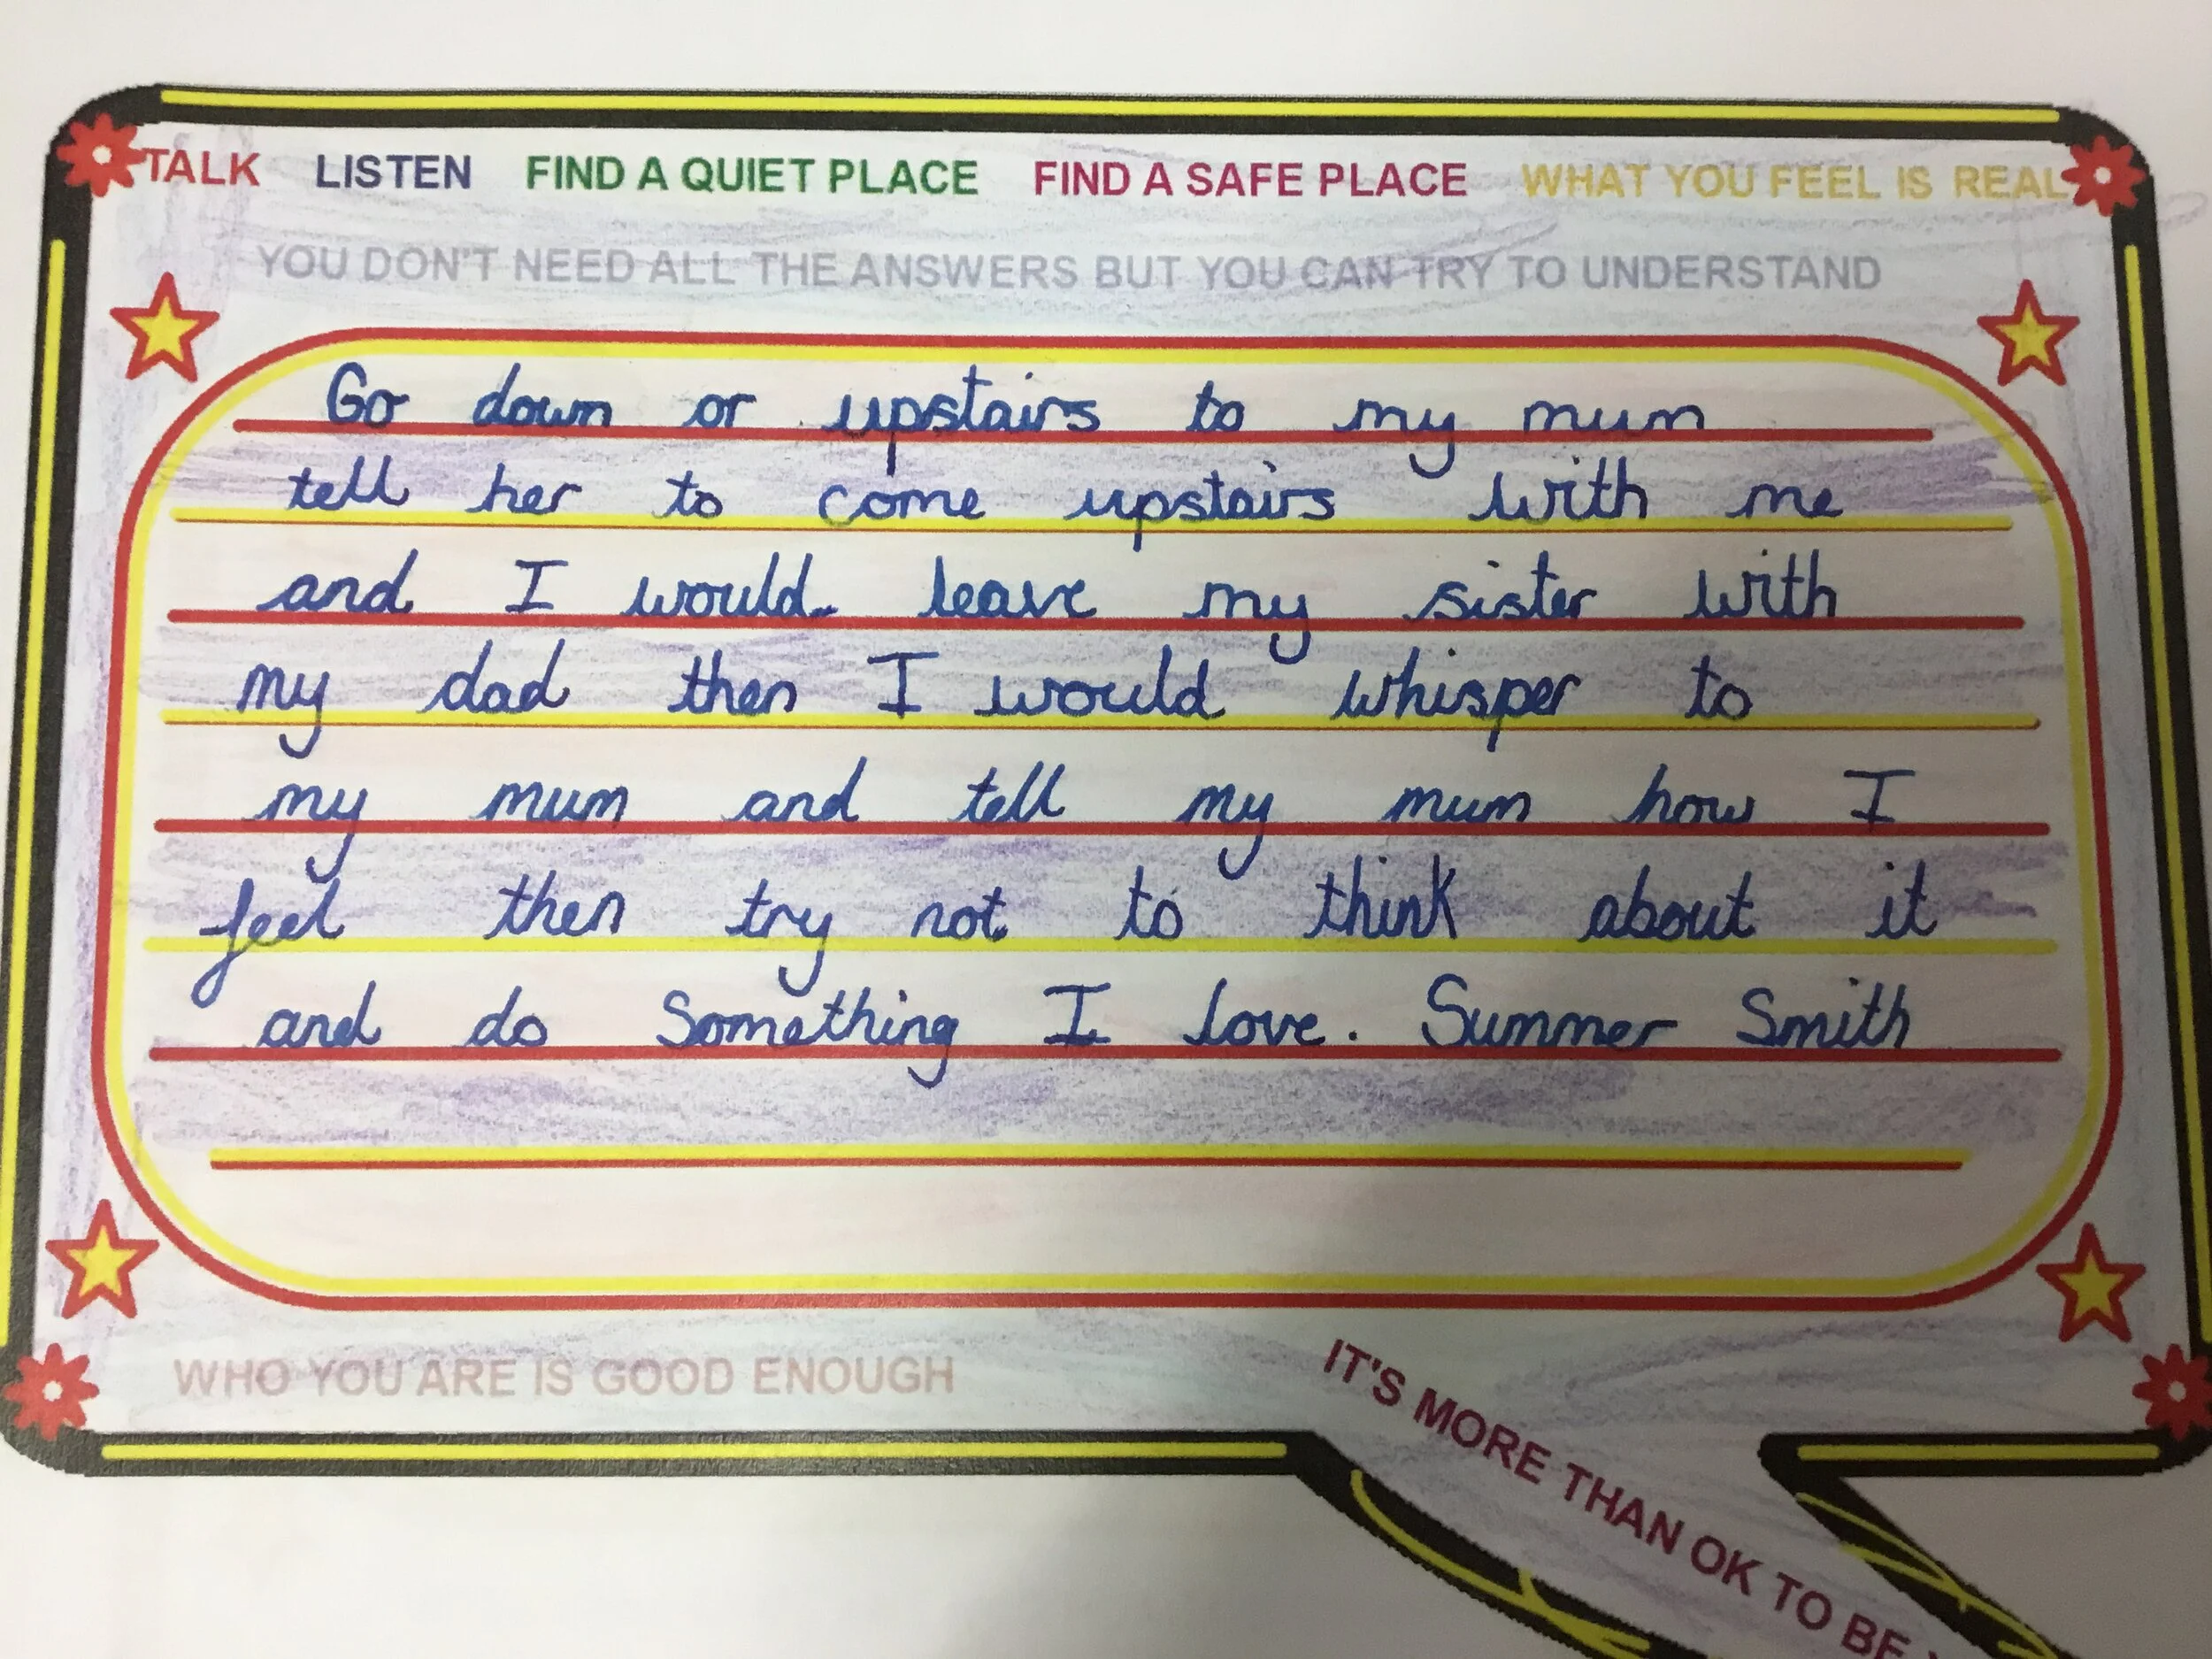 TALK LISTEN FIND A QUIET PLACE FIND A SAFE PLACE WHAT YOU FEEL IS REAL
YOU DON'T NEED ALL THE ANSWERS BUT YOU CAN TRY TO UNDERSTAND
Go down or upstairs to my mum
tell her to come upstairs with me
and I would leave my sister with
my dad then I would whisper to
my mum and tell my mum how I
feel then try not to think about it
and do Something I love. Summer Smith
WHO YOU ARE IS GOOD ENOUGH
IT'S MORE THAN OK TO BE